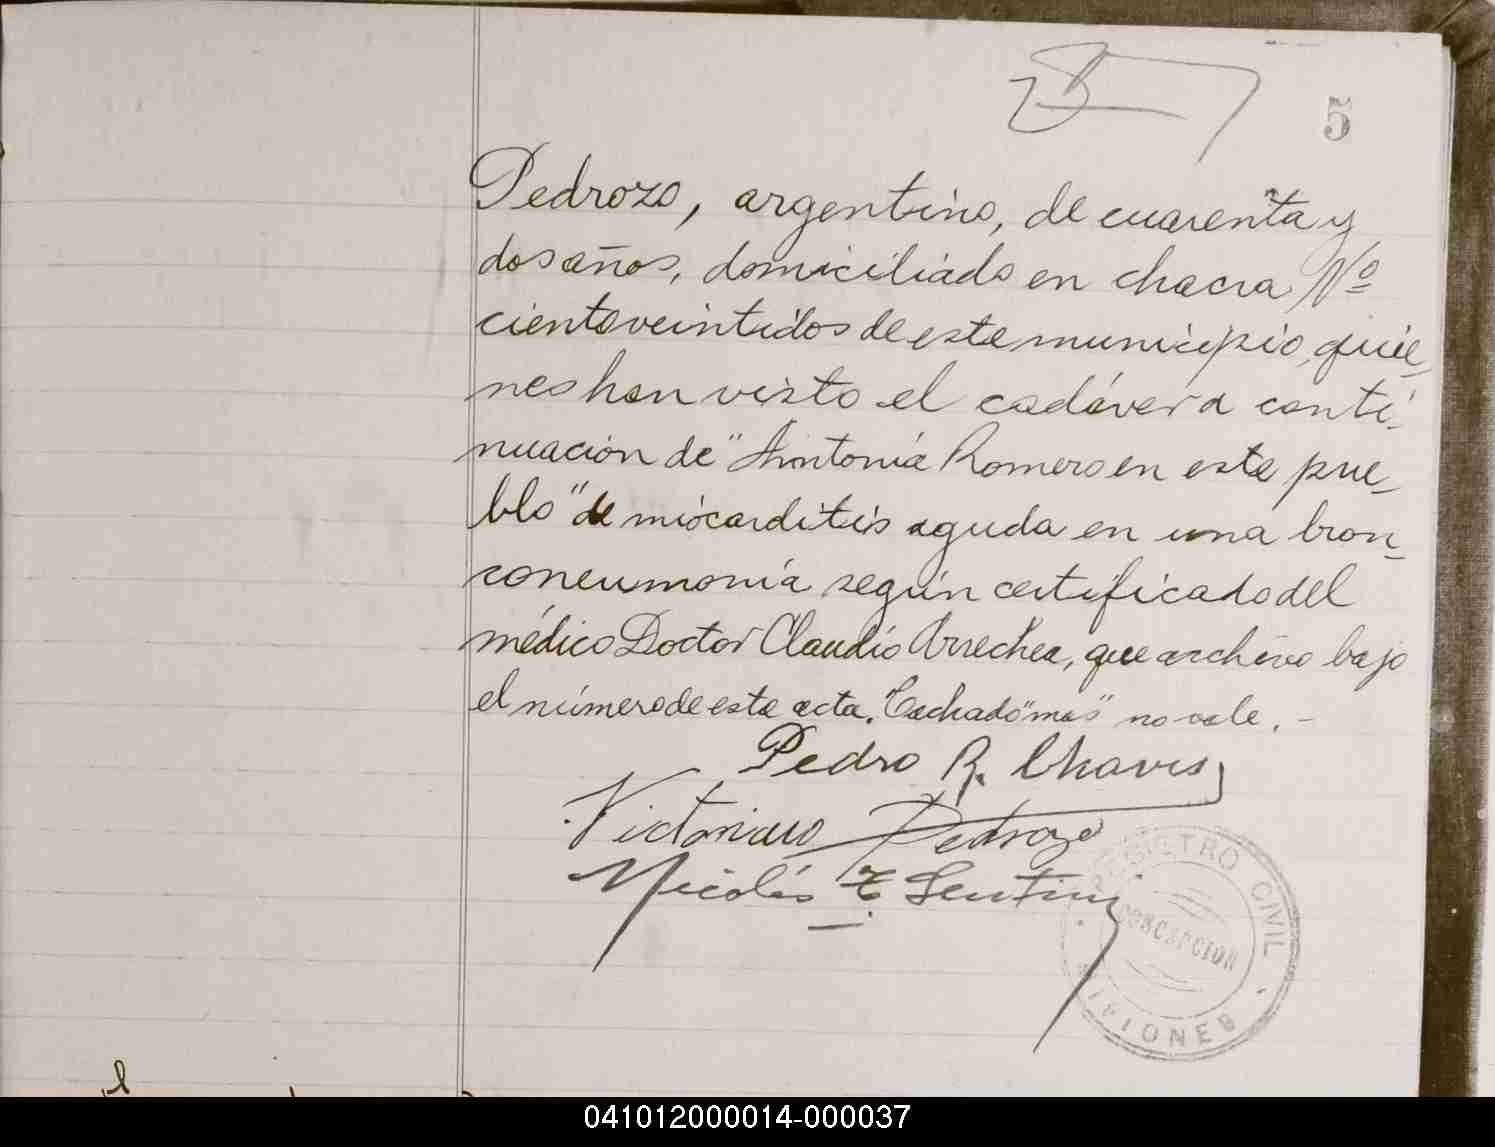 5
Pedrozo, argentino, de cuarenta y
dos años, domiciliado en chacra Nº
ciento veintidos de este municipio, quie_
nes han visto el cadáver a conti_
nuación de "Antonia Romero en este pue_
blo" de miocarditis aguda en una bron_
coneumonía según certificado del
médico Doctor Claudio Arrechea, que archivo bajo
el número de esta acta. Tachado "mas" no vale. -
Pedro R. Chaves
Victoriano Pedrozo
Nicolás
REGISTRO CIVIL
CONCEPCION
MISIONES
041012000014-000037